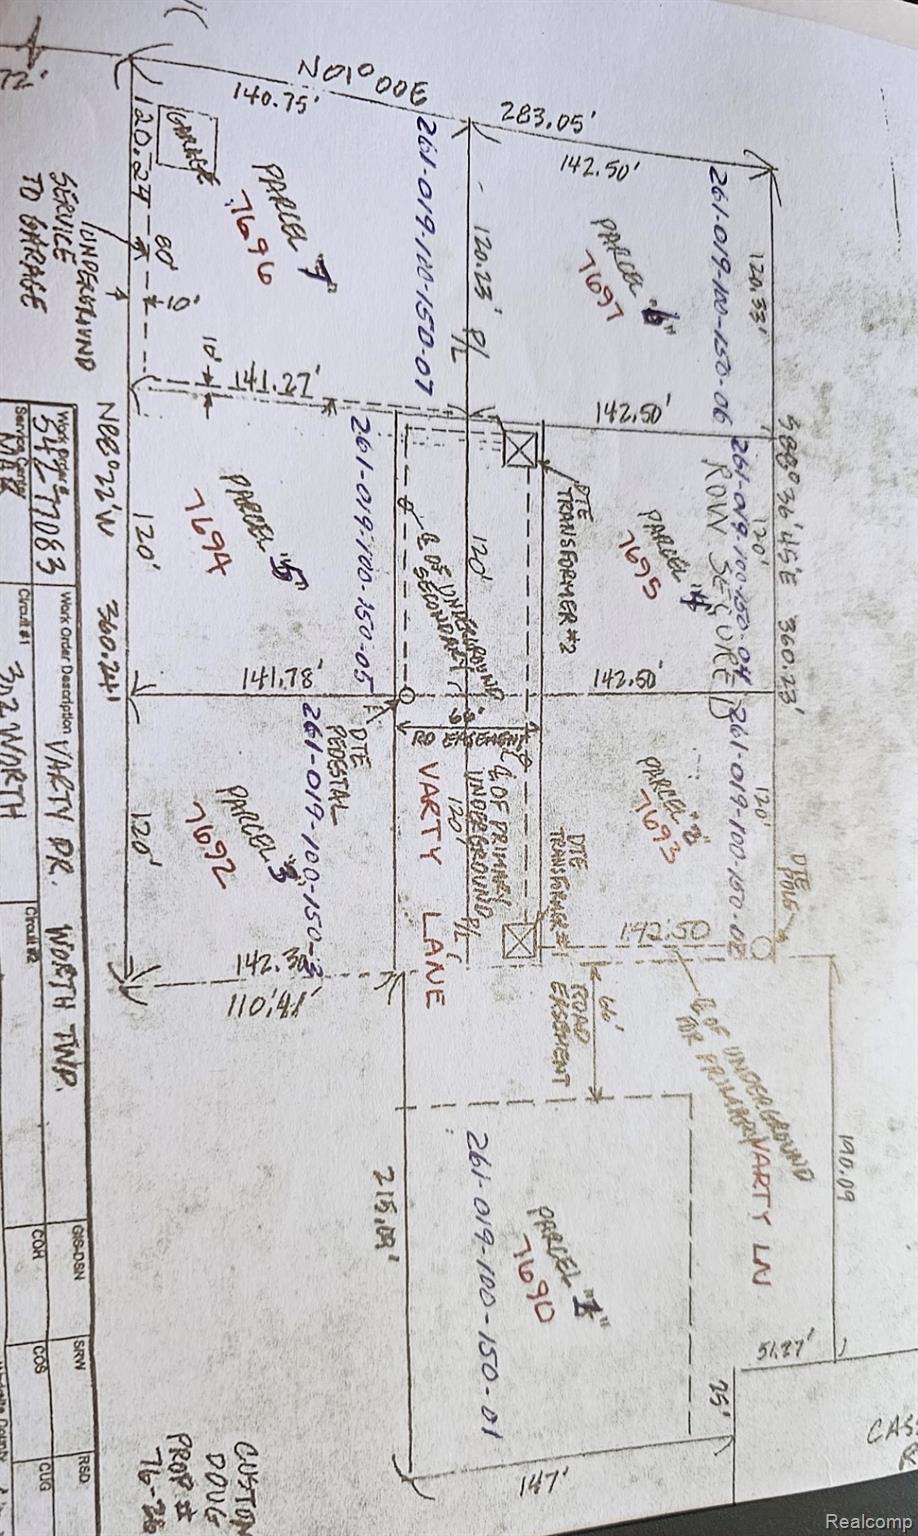 72'
N01°00E
140.75'
283.05'
142.50'
120.27
GARAGE
PARCEL "7"
7696
261-019-100-150-07
120.23'
P/L
PARCEL "6"
7697
261-019-100-150-06
120.33'
UNDERGROUND
SERVICE
TO GARAGE
80'
10'
10'
141.27'
142.50'
S88°36'45"E 360.23'
N88°22'W 360.24'
120'
PARCEL "5"
7694
261-019-100-150-05
120'
℄ OF UNDERGROUND
SECONDARY
DTE
TRANSFORMER #2
PARCEL "4"
7695
261-019-100-150-04
ROW SECURED
120'
141.78'
142.50'
DTE
PEDESTAL
66'
RD EASEMENT
120'
PARCEL "3"
7692
261-019-100-150-3
VARTY LANE
120'
P/L
℄ OF PRIMARY
UNDERGROUND
DTE
TRANSFORMER #1
PARCEL "2"
7693
261-019-100-150-02
120'
DTE
POLE
142.50
142.30'
110.41'
66'
ROAD
EASEMENT
℄ OF UNDERGROUND
FOR PRIMARY
VARTY LN
190.09
215.09'
261-019-100-150-01
PARCEL "1"
7690
51.27'
25'
147'
CAS
Work Order #
54277083
Service Center
Work Order Description
VARTY DR. WORTH TWP.
Circuit #1
Circuit #2
GIS-DSN
SRW
RSD
COH
COS
CUG
DOUG
PROP #
Realcomp